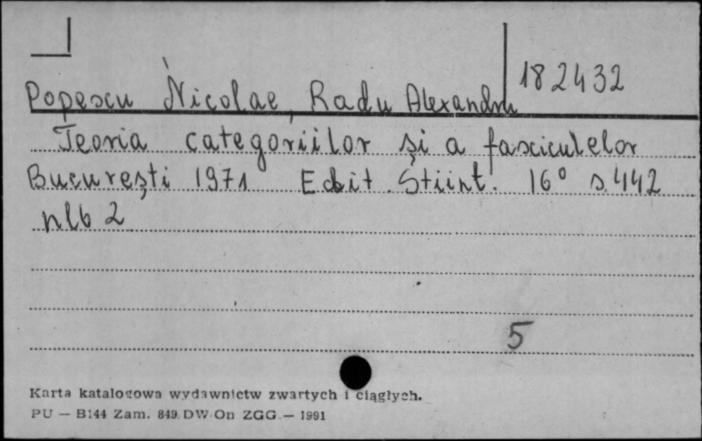 182432
Popescu Nicolae, Radu Alexandru
Teoria categoriilor și a fasciculelor
București 1971 Edit. Științ. 16° s. 442
nlb 2
5
Karta katalogowa wydawnictw zwartych i ciągłych.
PU — B144 Zam. 849 DW On ZGG — 1991